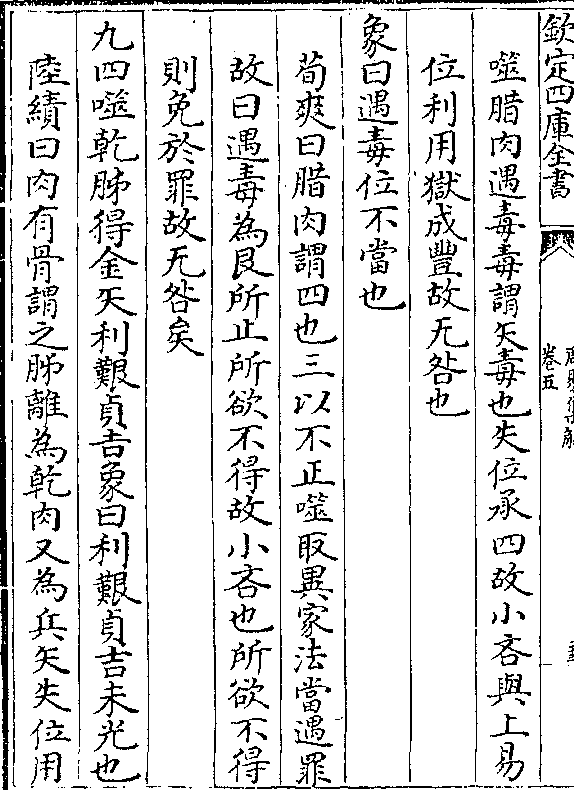 欽定四庫全書
卷五
噬腊肉遇毒毒謂矢毒也失位承四故小吝與上易
位利用獄成豐故无咎也
象曰遇毒位不當也
荀爽曰腊肉謂四也三以不正噬取異家法當遇罪
故曰遇毒為艮所止所欲不得故小吝也所欲不得
則免於罪故无咎矣
九四噬乾胏得金矢利艱貞吉象曰利艱貞吉未光也
陸績曰肉有骨謂之胏離為乾肉又為兵矢失位用